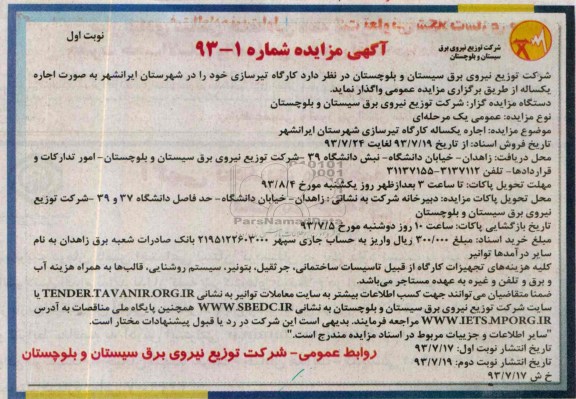 نوبت اول
شرکت توزیع نیروی برق
سیستان و بلوچستان
آگهی مزایده شماره ۱-۹۳
شرکت توزیع نیروی برق سیستان و بلوچستان در نظر دارد کارگاه تیرسازی خود را در شهرستان ایرانشهر به صورت اجاره
یکساله از طریق برگزاری مزایده عمومی واگذار نماید.
دستگاه مزایده گزار: شرکت توزیع نیروی برق سیستان و بلوچستان
نوع مزایده: عمومی یک مرحله‌ای
موضوع مزایده: اجاره یکساله کارگاه تیرسازی شهرستان ایرانشهر
تاریخ فروش اسناد: از تاریخ ۹۳/۷/۱۹ لغایت ۹۳/۷/۲۴
محل دریافت: زاهدان- خیابان دانشگاه- نبش دانشگاه ۳۹ -شرکت توزیع نیروی برق سیستان و بلوچستان- امور تدارکات و
قراردادها- تلفن ۳۱۳۷۱۱۲-۳۱۱۳۷۱۵۵
مهلت تحویل پاکات: تا ساعت ۳ بعدازظهر روز یکشنبه مورخ ۹۳/۸/۴
محل تحویل پاکات مزایده: دبیرخانه شرکت به نشانی: زاهدان- خیابان دانشگاه- حد فاصل دانشگاه ۳۷ و ۳۹ -شرکت توزیع
نیروی برق سیستان و بلوچستان
تاریخ بازگشایی پاکات: ساعت ۱۰ روز دوشنبه مورخ ۹۳/۷/۵
مبلغ خرید اسناد: مبلغ ۳۰۰/۰۰۰ ریال واریز به حساب جاری سپهر ۲۱۹۵۱۲۲۶۰۳۰۰۰ بانک صادرات شعبه برق زاهدان به نام
سایر درآمدها توانیر
کلیه هزینه‌های تجهیزات کارگاه از قبیل تاسیسات ساختمانی، جرثقیل، بتونیر، سیستم روشنایی، قالب‌ها به همراه هزینه آب
و برق و تلفن و غیره به عهده مستاجر می‌باشد.
ضمنا متقاضیان می‌توانند جهت کسب اطلاعات بیشتر به سایت معاملات توانیر به نشانی TENDER.TAVANIR.ORG.IR یا
سایت شرکت توزیع نیروی برق سیستان و بلوچستان به نشانی WWW.SBEDC.IR همچنین پایگاه ملی مناقصات به آدرس
WWW.IETS.MPORG.IR مراجعه فرمایند. بدیهی است این شرکت در رد یا قبول پیشنهادات مختار است.
"سایر اطلاعات و جزییات مربوط در اسناد مزایده مندرج است."
تاریخ انتشار نوبت اول: ۹۳/۷/۱۷
تاریخ انتشار نوبت دوم: ۹۳/۷/۱۹
خ ش ۹۳/۷/۱۷
روابط عمومی- شرکت توزیع نیروی برق سیستان و بلوچستان